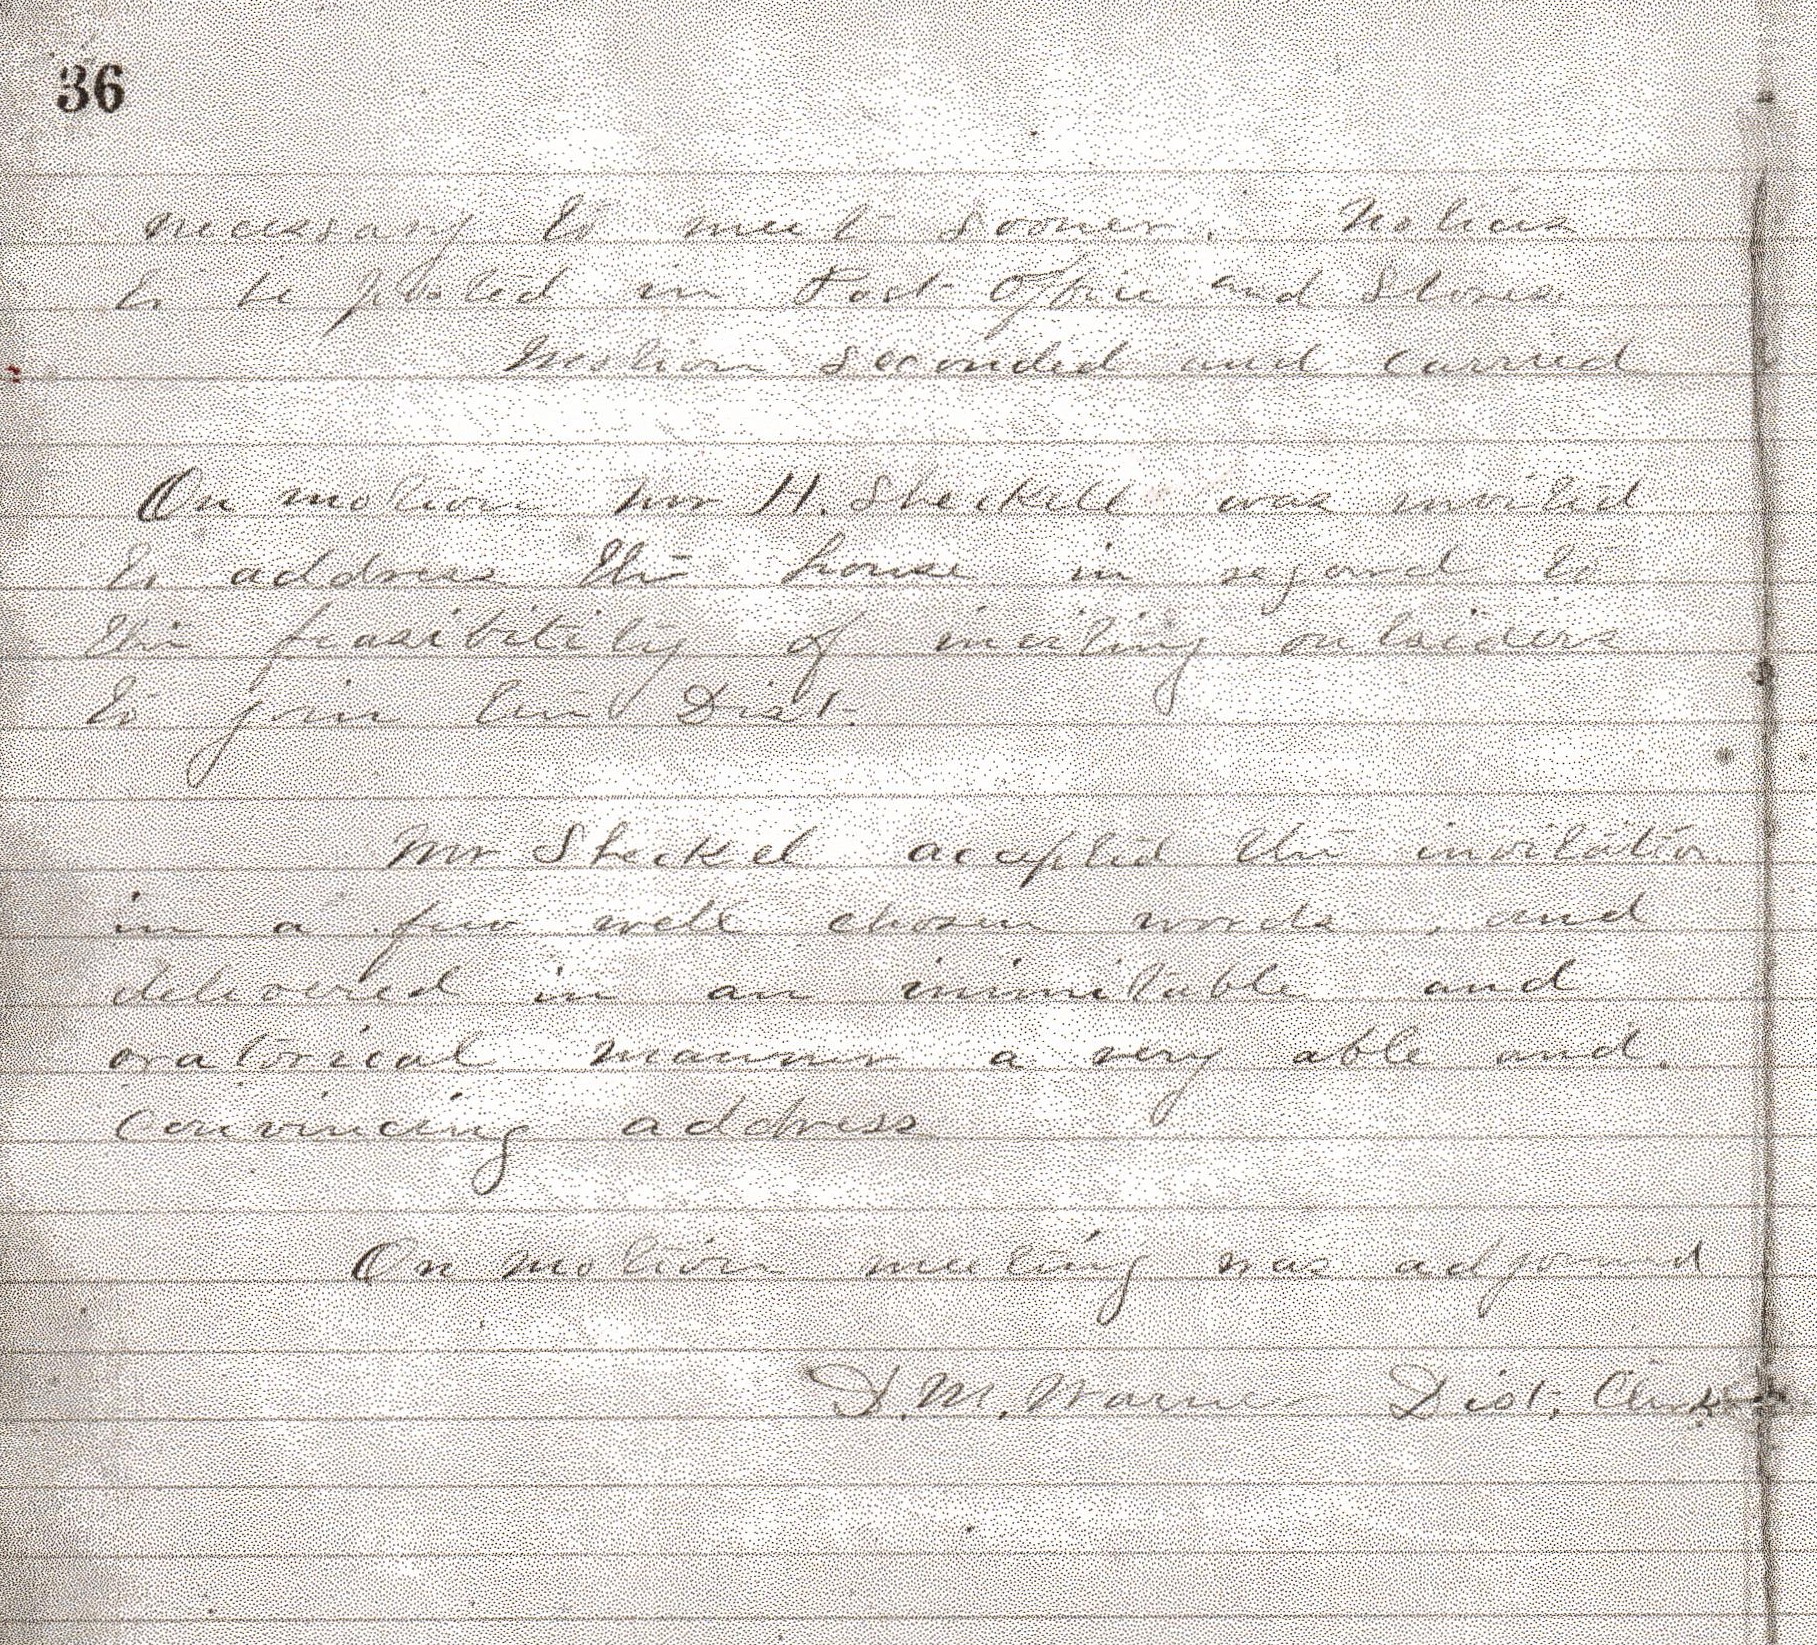 36
necessary to meet sooner. Notices
to be posted in Post Office and Stores
Motion seconded and carried
On motion Mr H. Sheckell was invited
to address the house in regard to
the feasibility of inviting outsiders
to join this Dist.
Mr Sheckel accepted the invitation
in a few well chosen words, and
delivered in an inimitable and
oratorical manner a very able and
convincing address
On motion meeting was adjournd
D. M. Warne Dist. Clerk